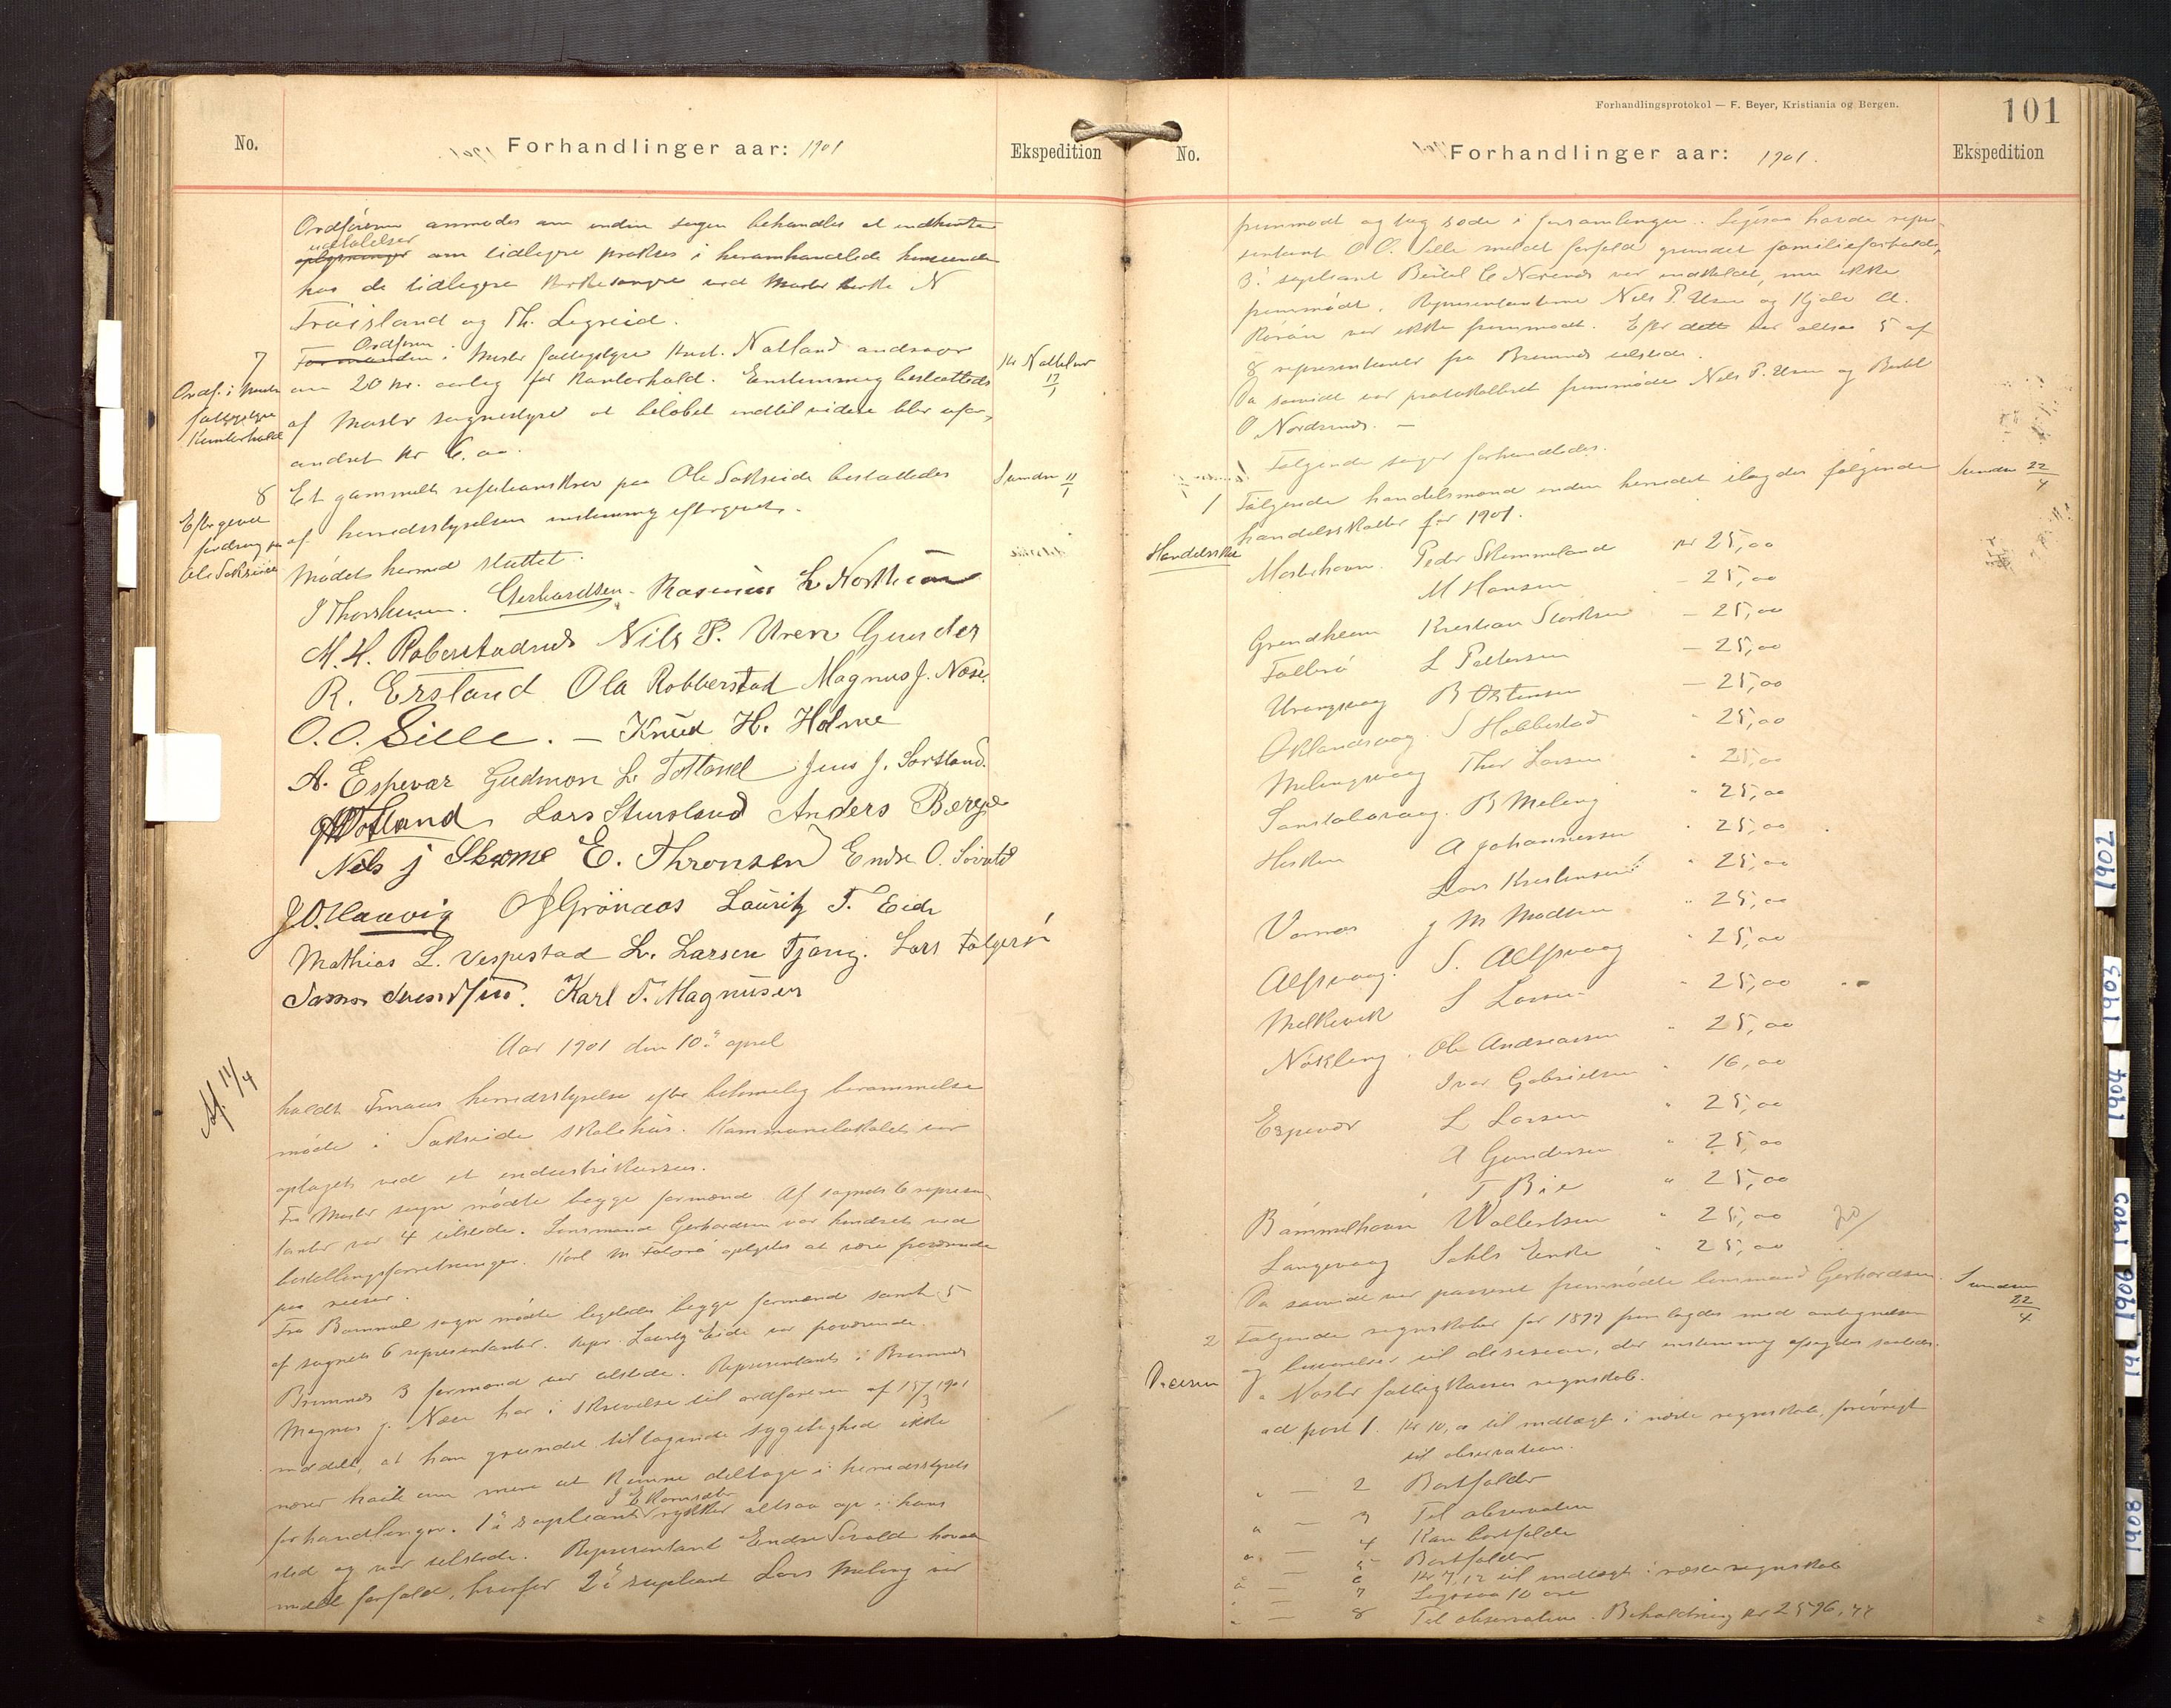 No.
Forhandlinger aar: 1901
Ekspedition
Ordføreren anmodes om inden sagen behandles at indhente
udtalelser
oplysninger om tidligere praksis i heromhandlede henseende
hos de tidligere kirkesangere ved Moster kirke N
Trøisland og Th. Legreid.
7
Ordføren
Formanden i Moster fattigstyre Knut Natland andrager
Kr Natland 17/1
Ordf. i Moster
fattigstyre
Kontorhold
om 20 kr. aarlig for kontorhold. Enstemmig besluttedes
af Moster sognestyre at beløbet indtil videre blir ufor-
andret kr 6.00.
8
Et gammelt refusionskrav paa Ole Sakseide besluttedes
Sunden 11/1
Eftergivet
fordring paa
Ole Sakseide
af herredsstyrelsen enstemmig eftergivet.
Mødet hermed sluttet.
J Thorsheim. Gerhardsen. Rasmus L Northun
M. H. Roberstadnes Nils P. Uren Gunder
R. Ersland Ola Robberstad Magnus J. Næse.
O. O. Lille. — Knud H. Holme
A. Espevær Gudmon L. Totland Jens J. Sørstand.
Totland Lars Stursland Anders Berge
Nils J Skeme E. Thronsen Endre O. Sivald
J. O. Haavig O J Grönaas Lauritz T. Eide
Mathias L. Vespestad L. Larsen Tjong. Lars Folgerø
Karl T. Magnusen
Aar 1901 den 10de april
Af. 11/4
holdt Finaas herredsstyrelse efter behørig berammelse
møde i Sakseide skolehus. Kommunelokalet var
optaget ved et industrikursus.
Fra Moster sogn mødte begge formænd. Af sognets 6 represen-
tanter var 4 tilstede. Lensmand Gerhardsen var hindret ved
bestillingsforretninger. Karl M Folgerø oplystes at være fraværende
paa reiser.
Fra Bømmel sogn mødte ligeledes begge formænd samt 5
af sognets 6 representanter. Repr. Lauritz Eide var fraværende.
Bremnes 3 formænd var tilstede. Representant i Bremnes
Magnus J. Næse har i skrivelse til ordføreren af 15/3 1901
meddelt, at han grundet tiltagende sygelighed ikke
nærer haab om mere at kunne deltage i herredsstyrets
forhandlinger. 1ste suppleant rykker altsaa op i hans
sted og var tilstede. Representant Endre Sivald havde
meldt forfald, hvorfor 2den supleant Lars Meling var
Forhandlingsprotokol — F. Beyer, Kristiania og Bergen.
101
No.
Forhandlinger aar: 1901.
Ekspedition
fremmødt og tog sæde i forsamlingen. Ligesaa havde repre-
sentant O O. Lille meldt forfald grundet familieforholde,
3die supleant Bertel C Nævenes var indkaldet, men ikke
fremmødt. Representanterne Nils P. Uren og Kjølv A.
Rørøen var ikke fremmødt. Efter dette var altsaa 5 af
8 representanter fra Bremnes tilstede.
Da saavidt var protokolleret fremmødte Nils P. Uren og Bertel
O Nordsund. —
Følgende sager forhandledes.
1
Følgende handelsmænd inden herredet ilagdes følgende
Sunden 22/4
handelsskatter for 1901.
Handelsskat
Mosterhavn. Peder Skimmeland kr 25,00
M Hansen - 25,00
Grindheim Kristian Storksen — 25,00
Follerø L Pettersen — 25,00
Urangsvaag B Østensen — 25,00
Oklandsvaag S Habbestad " 25,00
Melingsvaag Thor Larsen " 25,00
B Meling " 25,00
Hisken A Johannessen " 25,00
Lars Kristensen " 25,00
Vornæs J M Madsen " 25,00
Alfsvaag. S. Alfsvaag " 25,00
Melkevik S Larsen " 25,00
Nøkling. Ole Andreassen " 25,00
Ivar Gabrielsen " 16,00
Espevær L Larsen " 25,00
A Gundersen " 25,00
T Bie " 25,00
Bømmelhavn Wallentsen " 25,00
Langevaag Sahls Enke " 25,00
Da saavidt var passeret fremmødte lensmand Gerhardsen.
Sunden 22/4
2
Følgende regnskaber for 1899 fremlagdes med antegnelser
og besvarelser til decision, der enstemmig afsagdes saaledes.
Decision
a Moster fattigkasses regnskab.
ad post 1. Kr 10,0 til indtægt i næste regnskab forøvrigt
til observation.
" — 2 Bortfalder
" — 3 Til observation
" — 4 Kan bortfalde
" — 5 Bortfalder
" — 6 Kr 7,12 til indtægt i næste regnskab
" — 7 Ligesaa 10 øre
" — 8 Til observation. Beholdning kr 2596,44
1902
1903
1904
1905
1906
1908